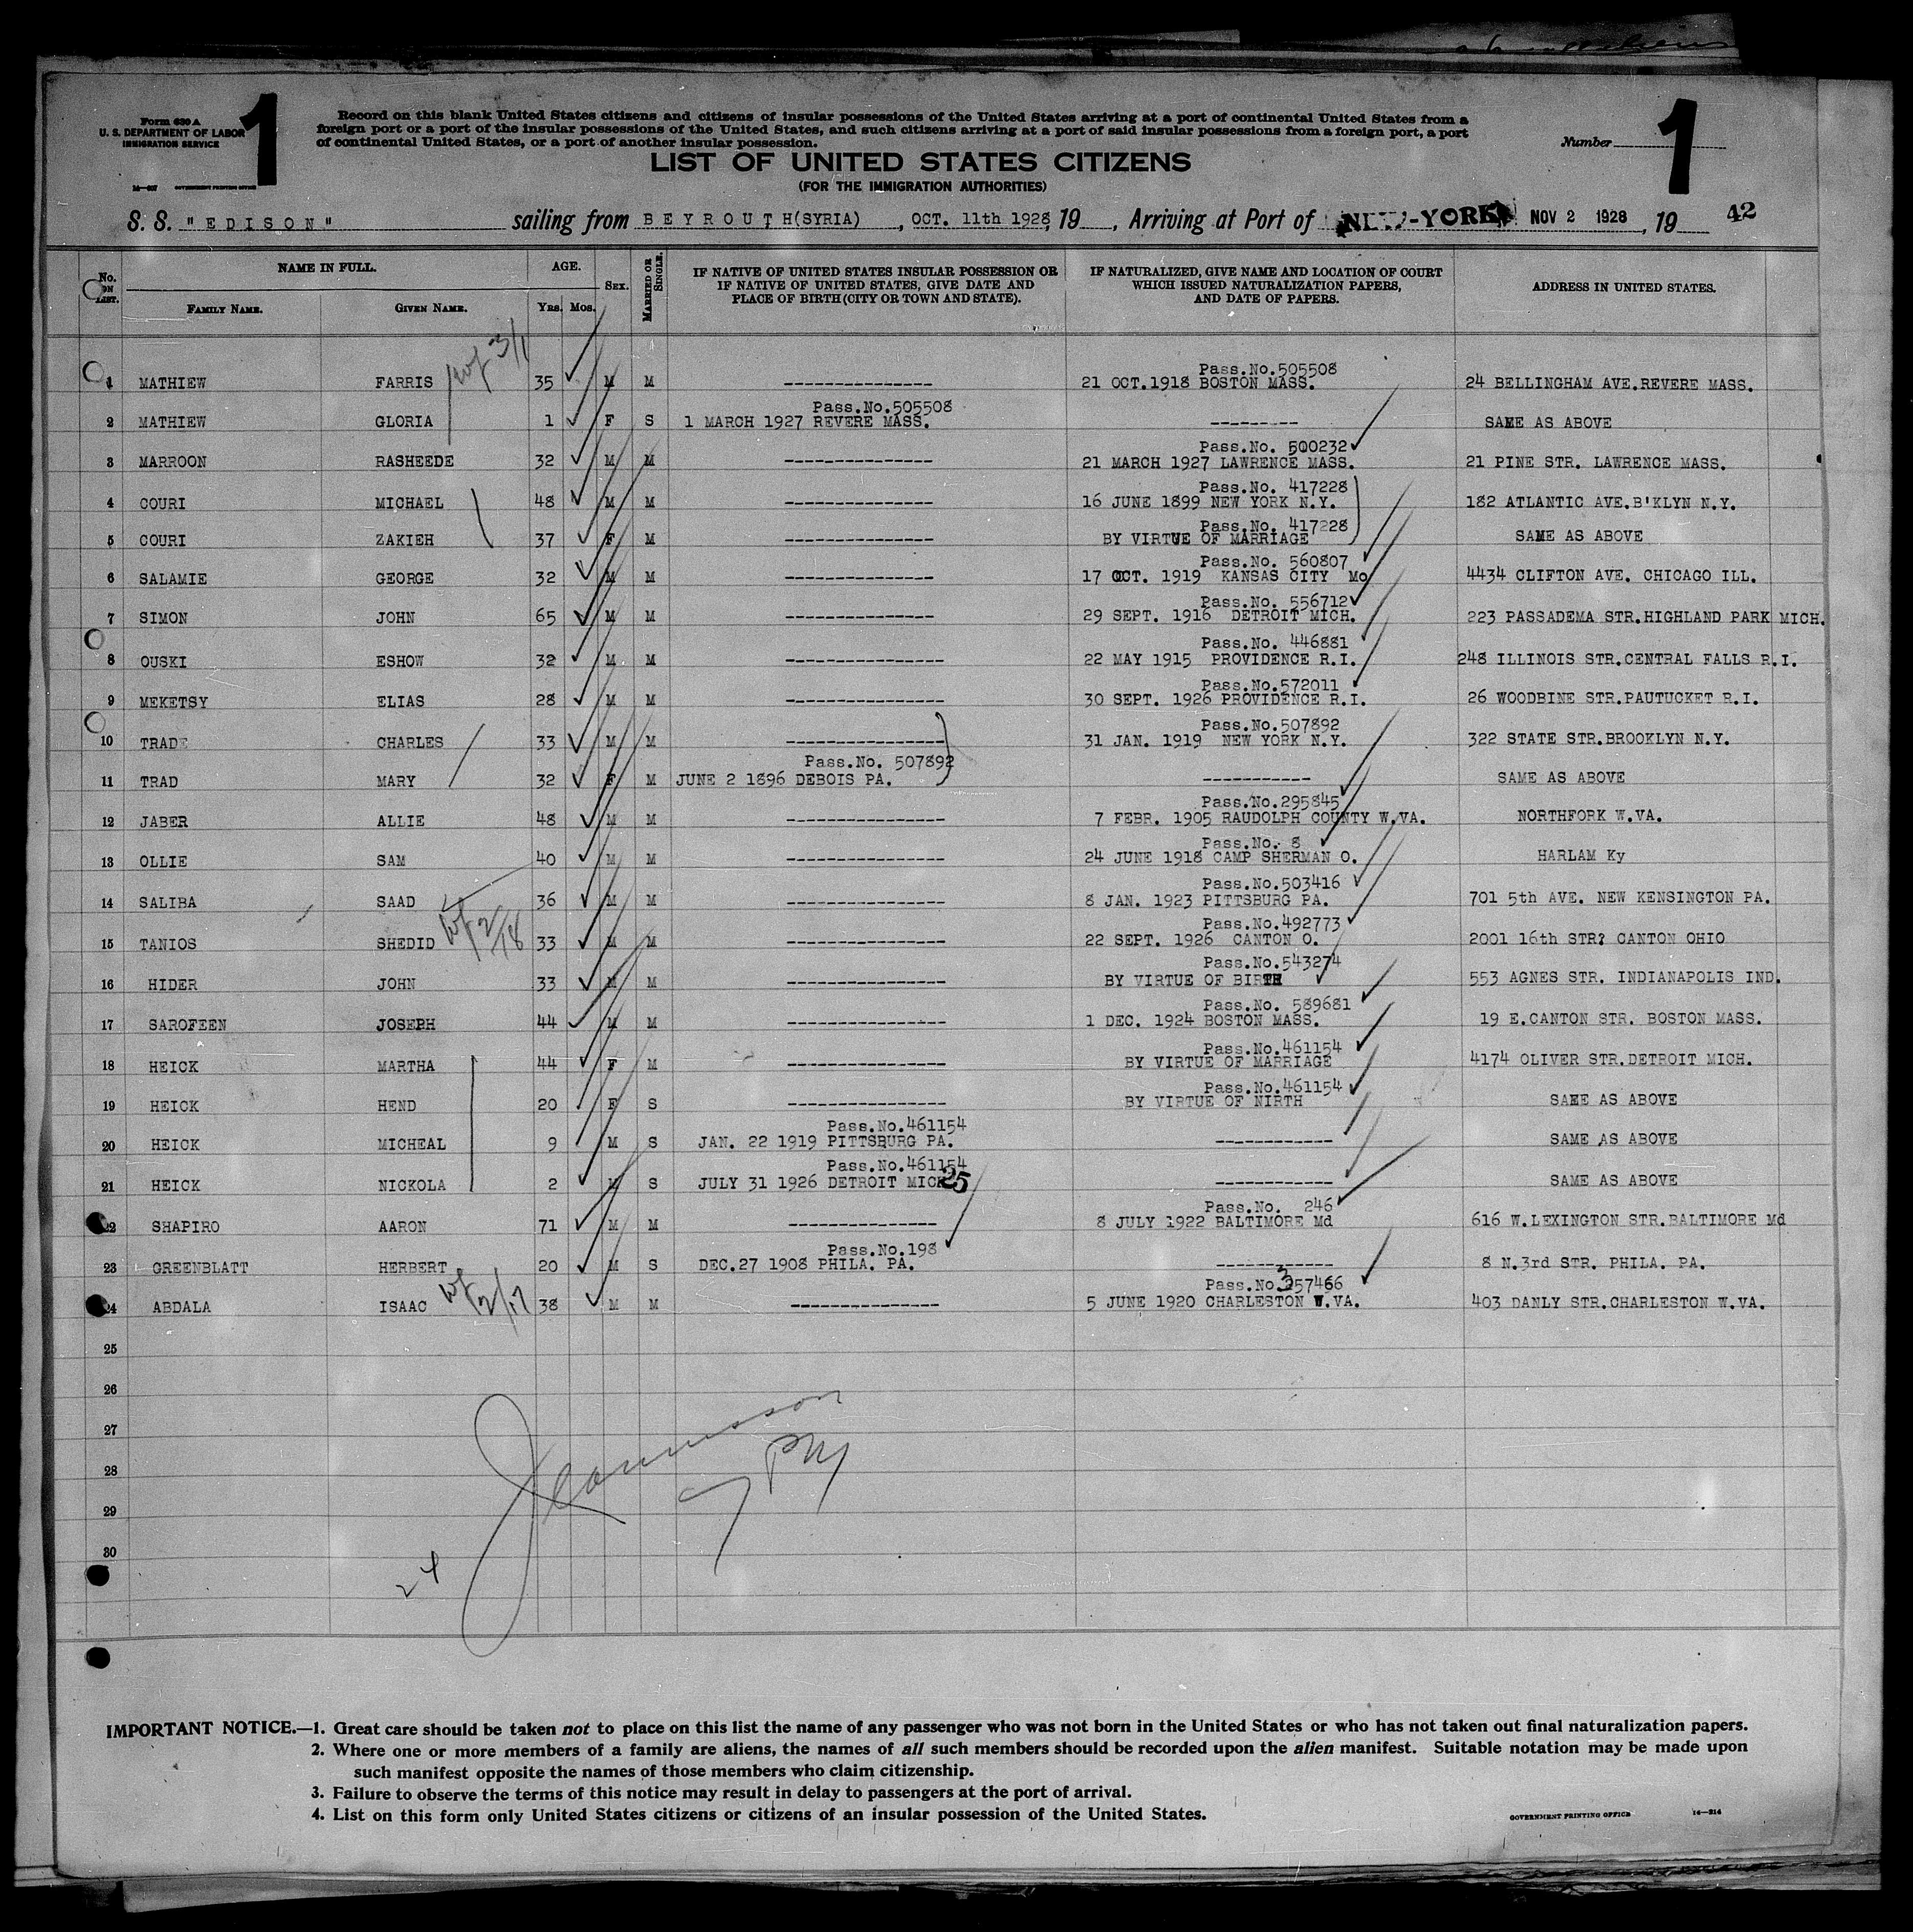 Form 630 A
U. S. DEPARTMENT OF LABOR
IMMIGRATION SERVICE
1
Record on this blank United States citizens and citizens of insular possessions of the United States arriving at a port of continental United States from a
foreign port or a port of the insular possessions of the United States, and such citizens arriving at a port of said insular possessions from a foreign port, a port
of continental United States, or a port of another insular possession.
Number
1
LIST OF UNITED STATES CITIZENS
(FOR THE IMMIGRATION AUTHORITIES)
GOVERNMENT PRINTING OFFICE
S. S. "EDISON" sailing from BEYROUTH(SYRIA), OCT. 11th 1928, 19 , Arriving at Port of NEW-YORK NOV 2 1928, 19 42
No. ON LIST. NAME IN FULL. AGE. SEX. MARRIED OR SINGLE. IF NATIVE OF UNITED STATES INSULAR POSSESSION OR IF NATIVE OF UNITED STATES, GIVE DATE AND PLACE OF BIRTH (CITY OR TOWN AND STATE). IF NATURALIZED, GIVE NAME AND LOCATION OF COURT WHICH ISSUED NATURALIZATION PAPERS, AND DATE OF PAPERS. ADDRESS IN UNITED STATES.
FAMILY NAME. GIVEN NAME. YRS. MOS.
wf 3/1
Pass.No.505508
1 MATHIEW FARRIS 35 M M --------------- 21 OCT.1918 BOSTON MASS. 24 BELLINGHAM AVE.REVERE MASS.
Pass.No.505508
2 MATHIEW GLORIA 1 F S 1 MARCH 1927 REVERE MASS. --------- SAME AS ABOVE
Pass.No. 500232
3 MARROON RASHEEDE 32 M M --------------- 21 MARCH 1927 LAWRENCE MASS. 21 PINE STR. LAWRENCE MASS.
Pass.No. 417228
4 COURI MICHAEL 48 M M --------------- 16 JUNE 1899 NEW YORK N.Y. 182 ATLANTIC AVE.B'KLYN N.Y.
Pass.No. 417228
5 COURI ZAKIEH 37 F M --------------- BY VIRTUE OF MARRIAGE SAME AS ABOVE
Pass.No. 560807
6 SALAMIE GEORGE 32 M M --------------- 17 OCT. 1919 KANSAS CITY Mo 4434 CLIFTON AVE. CHICAGO ILL.
Pass.No. 556712
7 SIMON JOHN 65 M M --------------- 29 SEPT. 1916 DETROIT MICH. 223 PASSADEMA STR.HIGHLAND PARK MICH.
Pass.No. 446881
8 OUSKI ESHOW 32 M M ---------------- 22 MAY 1915 PROVIDENCE R.I. 248 ILLINOIS STR.CENTRAL FALLS R.I.
Pass.No.572011
9 MEKETSY ELIAS 28 M M ---------------- 30 SEPT. 1926 PROVIDENCE R.I. 26 WOODBINE STR.PAUTUCKET R.I.
Pass.No.507892
10 TRADE CHARLES 33 M M ---------------- 31 JAN. 1919 NEW YORK N.Y. 322 STATE STR.BROOKLYN N.Y.
Pass.No. 507892
11 TRAD MARY 32 F M JUNE 2 1896 DEBOIS PA. ----------- SAME AS ABOVE
Pass.No.295845
12 JABER ALLIE 48 M M ---------------- 7 FEBR. 1905 RAUDOLPH COUNTY W.VA. NORTHFORK W.VA.
Pass.No. 8
13 OLLIE SAM 40 M M ---------------- 24 JUNE 1918 CAMP SHERMAN O. HARLAM Ky
Pass.No.503416
14 SALIBA SAAD 36 M M ---------------- 8 JAN. 1923 PITTSBURG PA. 701 5th AVE. NEW KENSINGTON PA.
Pass.No.492773
15 TANIOS SHEDID wf 2/18 33 M M ---------------- 22 SEPT. 1926 CANTON O. 2001 16th STR? CANTON OHIO
Pass.No.543274
16 HIDER JOHN 33 M M ---------------- BY VIRTUE OF BIRTH 553 AGNES STR. INDIANAPOLIS IND.
Pass.No. 589681
17 SAROFEEN JOSEPH 44 M M ---------------- 1 DEC. 1924 BOSTON MASS. 19 E.CANTON STR. BOSTON MASS.
Pass.No.461154
18 HEICK MARTHA 44 F M ---------------- BY VIRTUE OF MARRIAGE 4174 OLIVER STR.DETROIT MICH.
Pass.No.461154
19 HEICK HEND 20 F S ---------------- BY VIRTUE OF NIRTH SAME AS ABOVE
Pass.No.461154
20 HEICK MICHEAL 9 M S JAN. 22 1919 PITTSBURG PA. ------------ SAME AS ABOVE
Pass.No.461154
21 HEICK NICKOLA 2 M S JULY 31 1926 DETROIT MICH 25 ------------ SAME AS ABOVE
Pass.No. 246
22 SHAPIRO AARON 71 M M --------------- 8 JULY 1922 BALTIMORE Md 616 W.LEXINGTON STR.BALTIMORE Md
Pass.No.198
23 GREENBLATT HERBERT 20 M S DEC.27 1908 PHILA. PA. ------------ 8 N.3rd STR. PHILA. PA.
Pass.No.357466
24 ABDALA ISAAC wf 2/17 38 M M --------------- 5 JUNE 1920 CHARLESTON W.VA. 403 DANLY STR.CHARLESTON W.VA.
25
26
27
28
29
30
24
IMPORTANT NOTICE.—1. Great care should be taken not to place on this list the name of any passenger who was not born in the United States or who has not taken out final naturalization papers.
2. Where one or more members of a family are aliens, the names of all such members should be recorded upon the alien manifest. Suitable notation may be made upon
such manifest opposite the names of those members who claim citizenship.
3. Failure to observe the terms of this notice may result in delay to passengers at the port of arrival.
4. List on this form only United States citizens or citizens of an insular possession of the United States.
GOVERNMENT PRINTING OFFICE 14—214